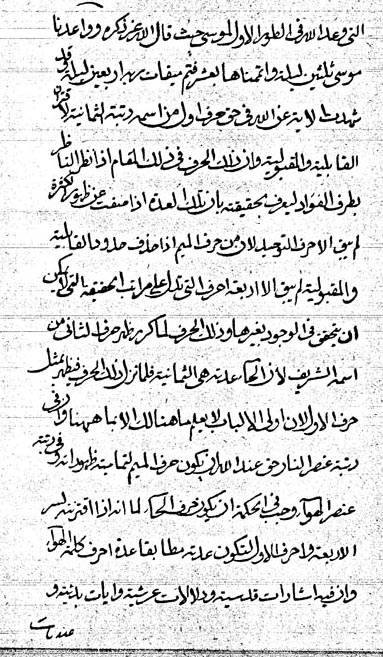 التي وعد الله في الطور الاول لموسى حيث قال الله عز ذكره وواعدنا
موسى ثلثين ليلة واتممناها بعشر فتم ميقات ربه اربعين ليلة قد
شهدت الاية عن الله في حق حرف اول من اسمه رتبة الثمانية لاقتران
القابلية والمقبولية وان ذلك الحرف في ذلك المقام اذا نظر الناظر
بطرف الفؤاد ليعرف بحقيقته بان تلك العدة اذا صفت عن ظهور الكثرة
لم يبق الا حرف التوحيد لان من حرف الميم اذا حذف حدود القابلية
والمقبولية لم يبق الا اربعة احرف التي تدل على مراتب الحقيقة التي لا يمكن
ان يتحقق في الوجود بغيرها وذلك الحرف لما كرر ظهر حرف الثاني من
اسمه الشريف لان الحاء عدته هي الثمانية فلما نزل ذلك الحرف فيظهر بمثل
حرف الاول لان اولى الالباب لا يعلم ما هنالك الا بما هيهنا وان في
رتبة عنصر النار حق عند الله ان يكون حرف الميم لتمامية ظهوراته وفي رتبة
عنصر الهواء وجب في الحكمة ان يكون حرف الحاء لما انه اذا اقترنت لسر
الاربعة واحرف الاول لتكون عدته مطابقا عدة احرف كلمة الهواء
وان فيه اشارات قدسية ودلالات عرشية وايات بدئية و